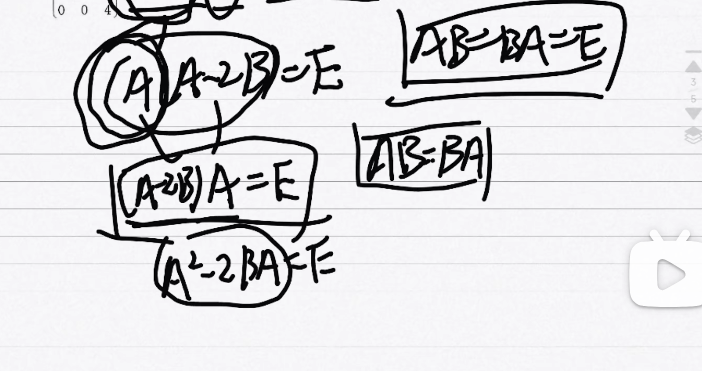 0 0 4
A(A-2B)=E
AB=BA=E
AB=BA
(A-2B)A=E
A²-2BA=E
3
5